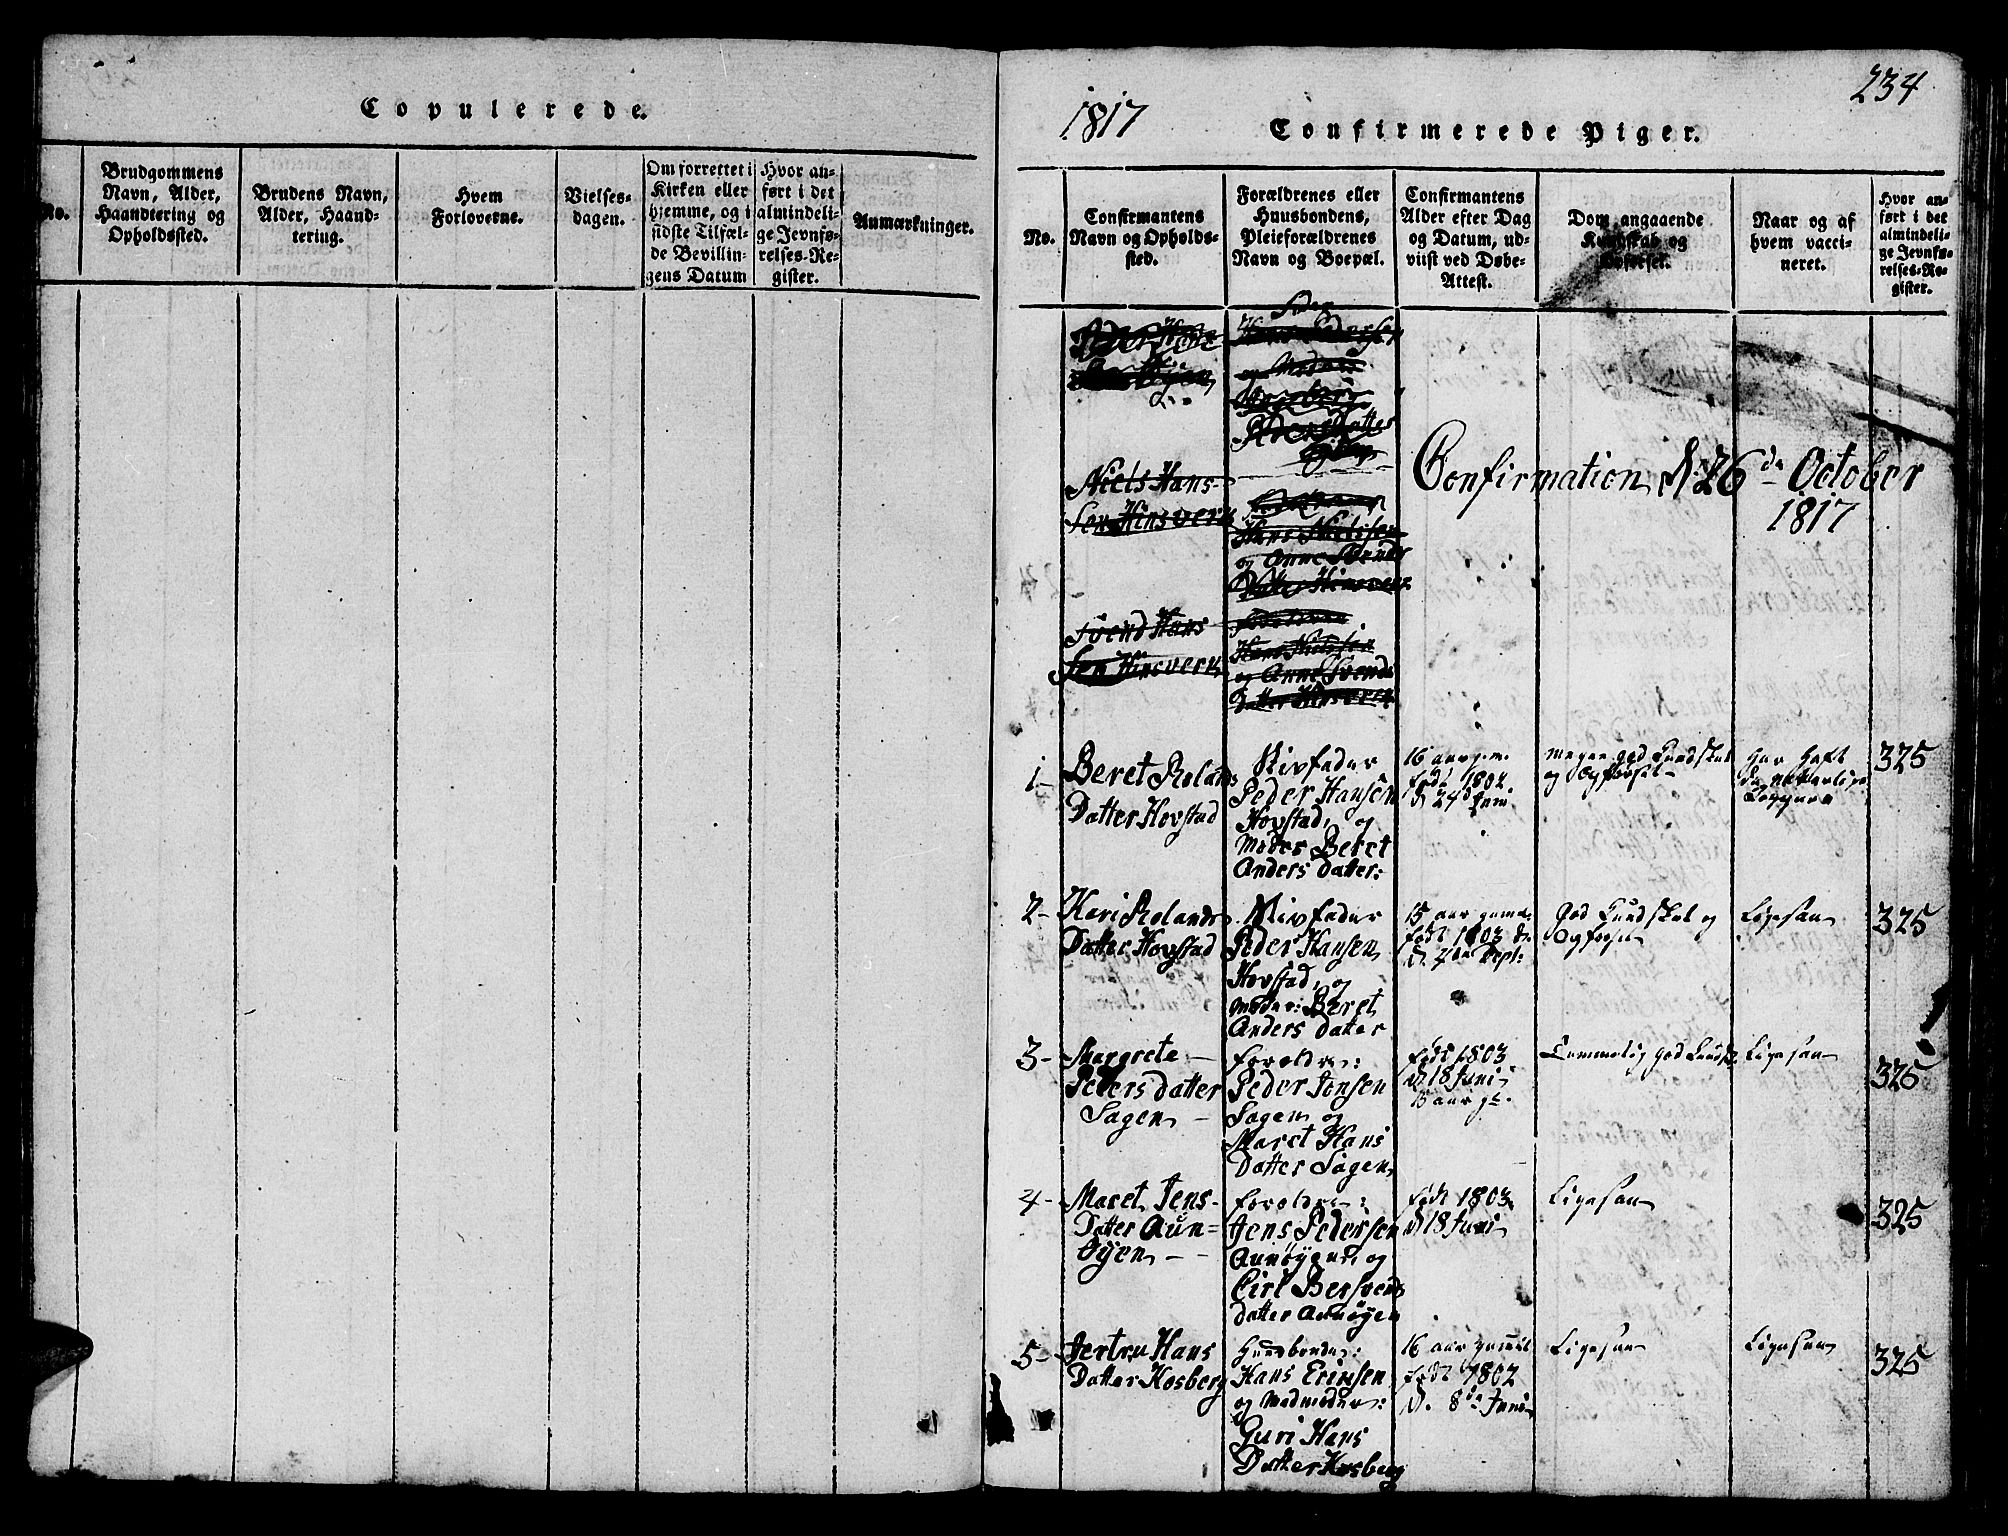 Copulerede.
No.
Brudgommens
Navn, Alder,
Haandtering og
Opholdssted.
Brudens Navn,
Alder, Haand-
tering.
Hvem
Forloverne.
Vielses-
dagen.
Om forrettet i
Kirken eller
hjemme, og i
sidste Tilfæl-
de Bevillin-
gens Datum
Hvor an-
ført i det
almindeli-
ge Jevnfø-
relses-Re-
gister.
Anmærkninger.
234
1817
Confirmerede Piger.
No.
Confirmantens
Navn og Opholds-
sted.
Forældrenes eller
Huusbondens,
Pleieforældrenes
Navn og Boepæl.
Confirmantens
Alder efter Dag
og Datum, ud-
viist ved Døbe-
Attest.
Dom angaaende
Kundskab og
Opførsel.
Naar og af
hvem vacci-
neret.
Hvor an-
ført i det
almindeli-
ge Jevnfø-
relses-Re-
gister.
Confirmation d. 26de October
1817
Niels Hans-
Sen Hinsverk
Hans Nielsen
og Anne Svends
Datter Hinsverk
Svend Hans
Sen Hinsverk
Hans Nielsen
og Anne Svends
Datter Hinsverk
1- Beret Rolands
Datter Hovstad
Stivfader
Peder Hansen
Hovstad, og
Moder Beret
Anders datter:
16 aar gam.
født 1802
d. 24de Juni
Megen god Kundskab
og Opførsel-
Har haft
de naturlige
Kopper
325
2- Kari Rolands
Datter Hovstad
Stivfader
Peder Hansen
Hovstad, og
Moder: Beret
Anders datter
15 aar gama.
født 1803
d. 7de Sept:
God Kundskab og
Opførsel
Ligesaa
325
3- Margrete
Peders datter
Sagen
Foreldre:
Peder Jonsen
Sagen og
Maret Hans
Datter Sagen
født 1803
d. 18 Juni
15 aar gl.
Temmelig god Kundsk.
Ligesaa
325
4- Maret Jens-
Datter Aun-
Øyen
Foreldre:
Jens Pedersen
Aunøyen, og
Cirl Bersvends
datter Aunøyen
født 1803
d. 18 Juni
Ligesaa
325
5- Jertru Hans
Datter Kosberg
Huusbonde:
Hans Erinsen
og Madmoder:
Guri Hans
Datter Kosberg
16 aar gamel
født 1802
d. 8de Juni
Ligesaa
Ligesaa
325